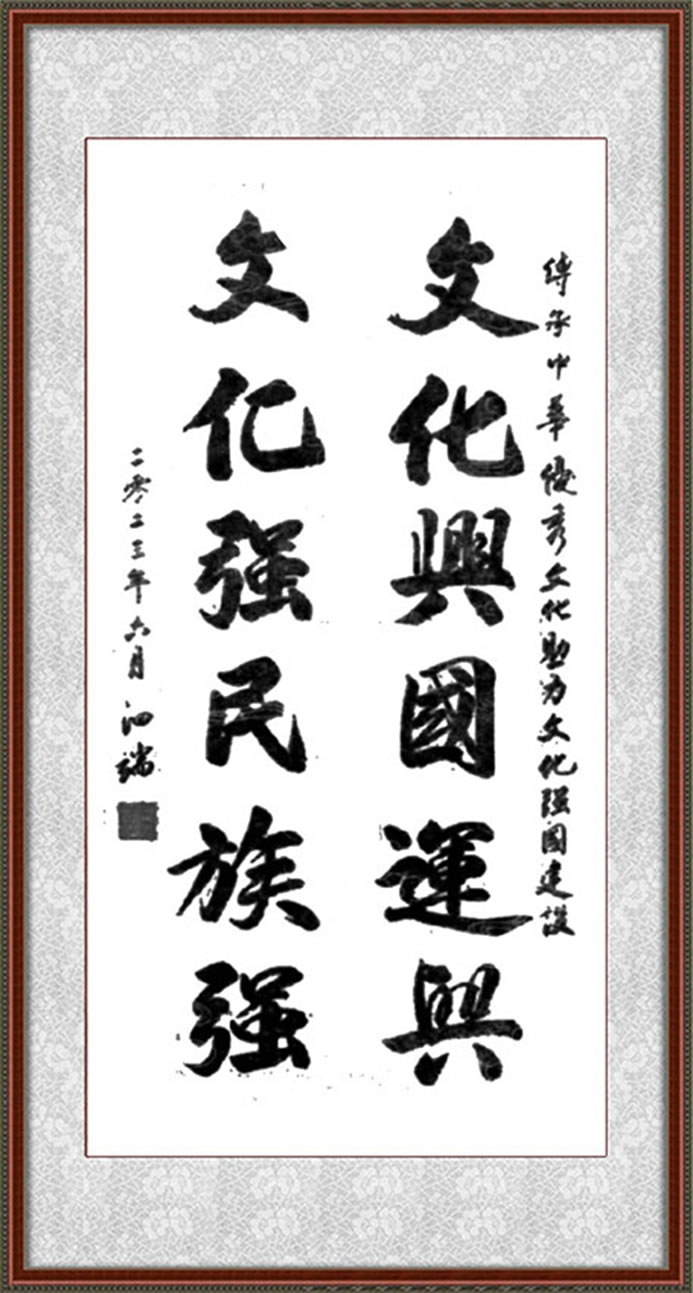 傳承中華優秀文化助力文化强國建設
文化興國運興
文化强民族强
二零二三年六月泗端